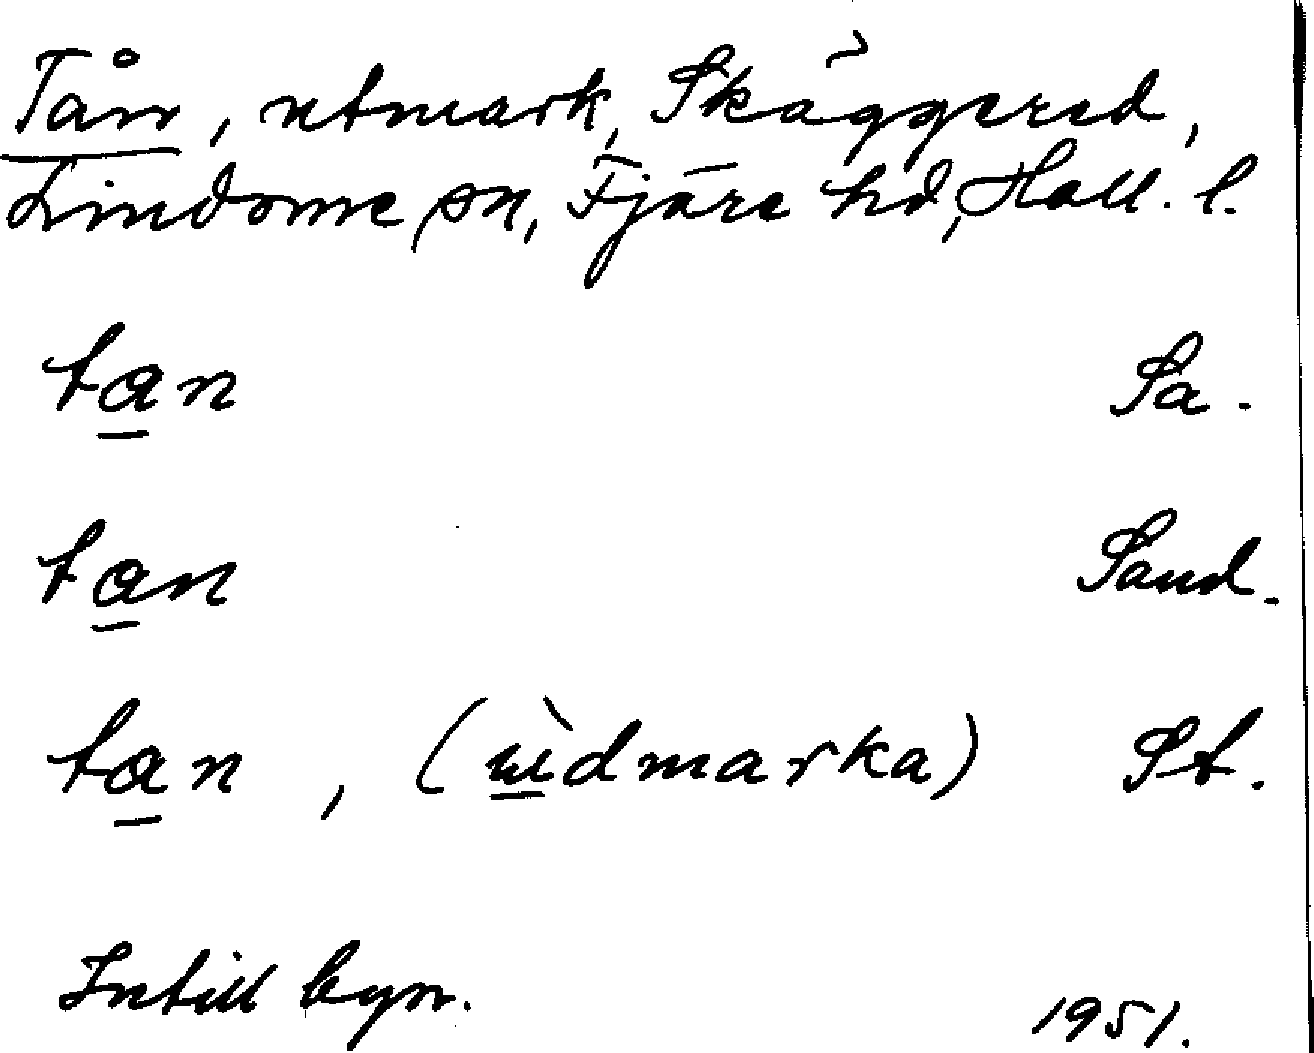 Tån, utmark, Skäggered,
Lindome sn, Fjäre hd, Hall. l.
tan Sa.
tan Sand.
tan, (ùdmarka) St.
Intill byn. 1951.